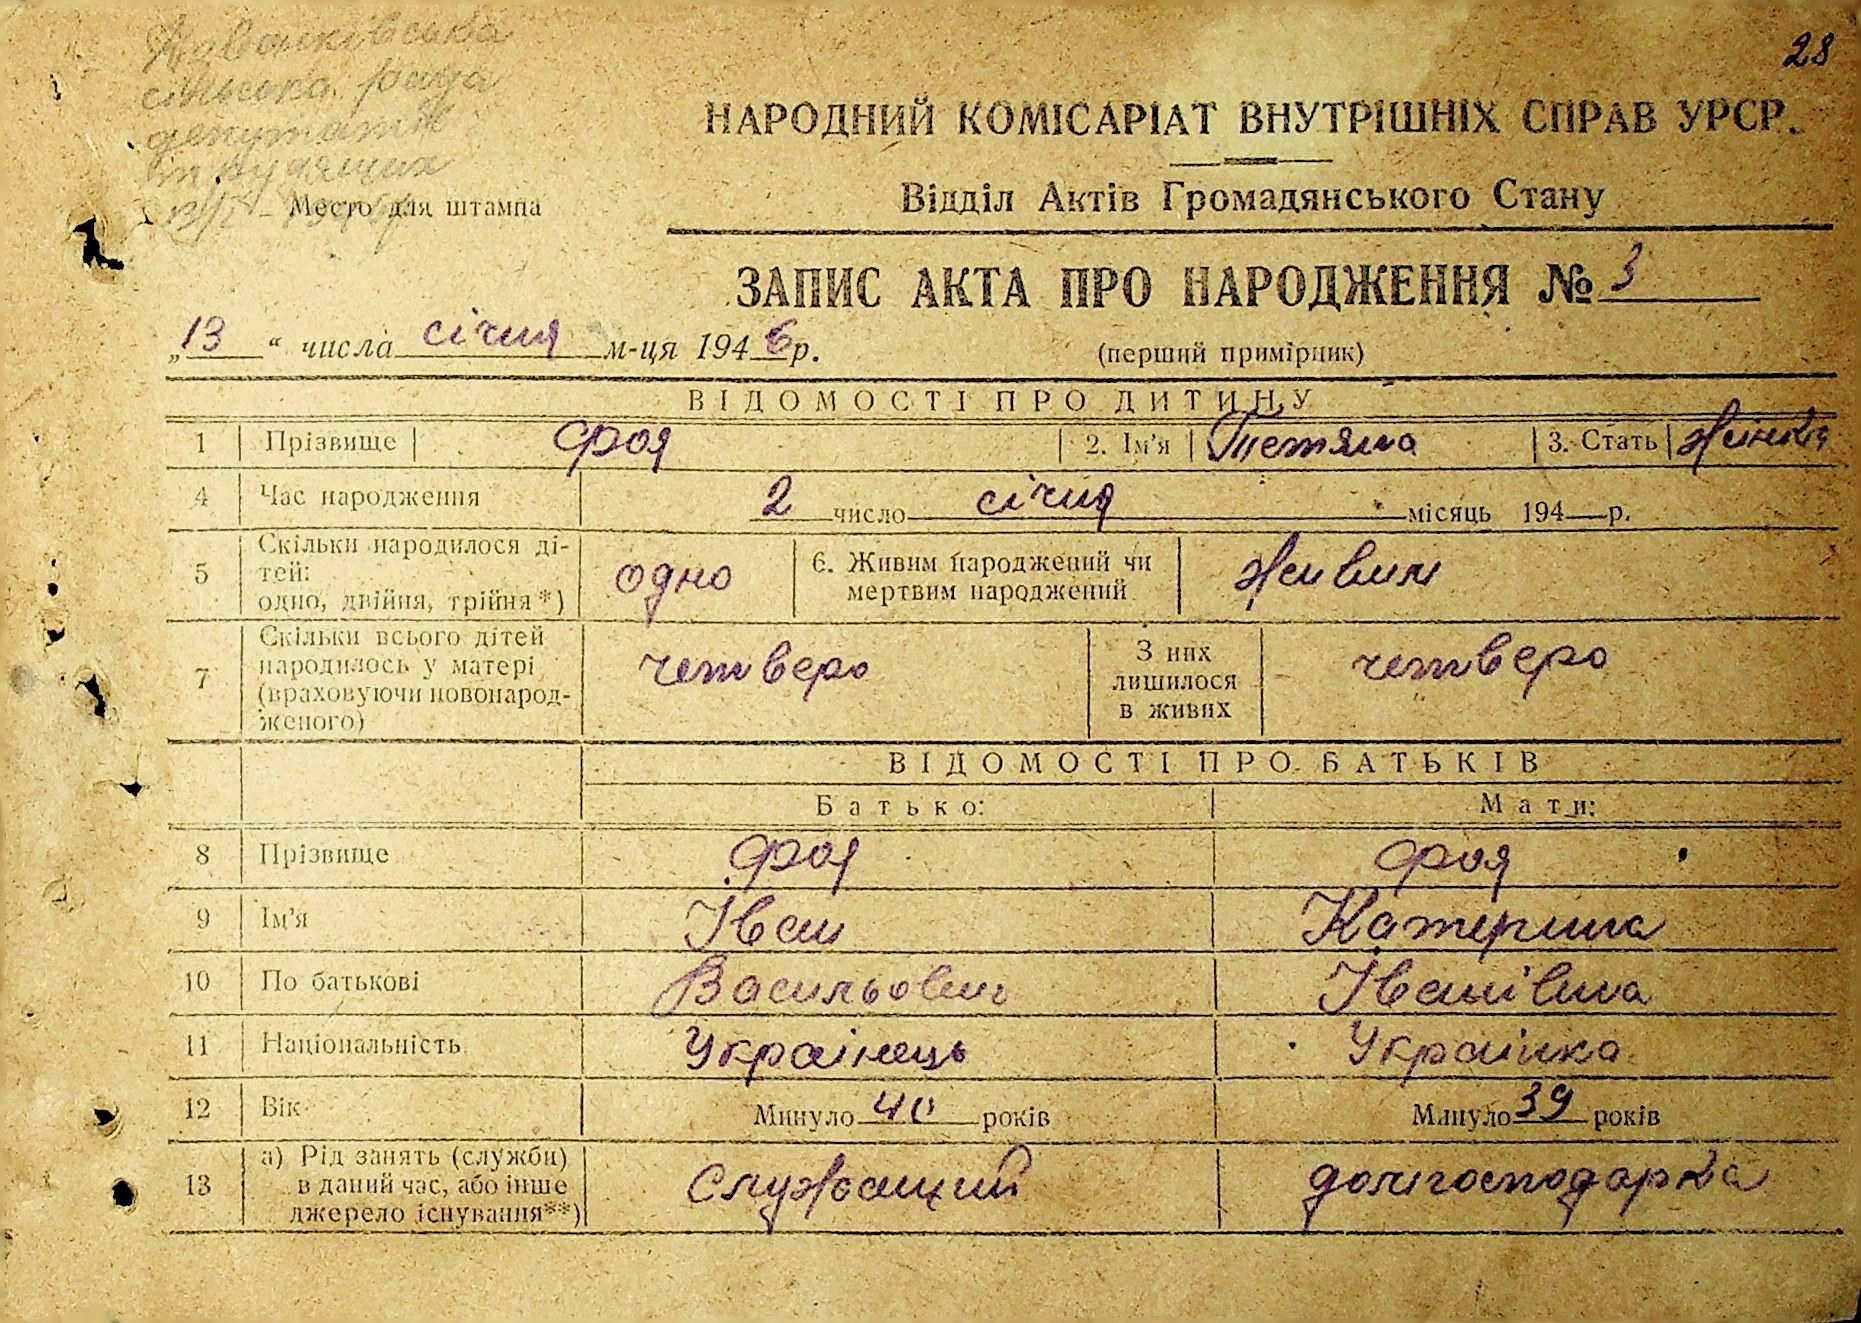 28
сільська рада
депутатів
трудящих
13/I - 1946 р
Место для штампа
НАРОДНИЙ КОМІСАРІАТ ВНУТРІШНІХ СПРАВ УРСР.
Відділ Актів Громадянського Стану
ЗАПИС АКТА ПРО НАРОДЖЕННЯ № 3
„13“ числа січня м-ця 1946 р.
(перший примірник)
ВІДОМОСТІ ПРО ДИТИНУ
1 Прізвище Фоя 2. Ім'я Тетяна 3. Стать жіноча
4 Час народження 2 число січня місяць 194 р.
5 Скільки народилося ді-
тей:
одно, двійня, трійня*) одно 6. Живим народжений чи
мертвим народжений живим
7 Скільки всього дітей
народилось у матері
(враховуючи новонарод-
женого) четверо З них
лишилося
в живих четверо
ВІДОМОСТІ ПРО БАТЬКІВ
Батько: Мати:
8 Прізвище Фоя Фоя
9 Ім'я Іван Катерина
10 По батькові Васильович Іванівна
11 Національність Украінець Украінка
12 Вік Минуло 40 років Минуло 39 років
13 а) Рід занять (служби)
в даний час, або інше
джерело існування**) Служащий домгосподарка